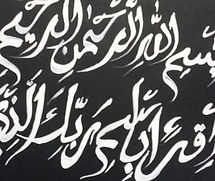 بسم الله الرحمن الرحيم
اقرأ باسم ربك الذي